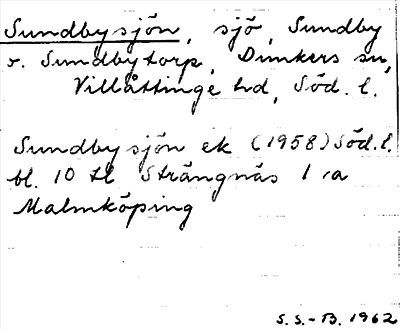 Sundbysjön, sjö, Sundby
o. Sundbytorp, Dunkers sn,
Villåttinge hd, Söd. l.
Sundbysjön ek (1958) Söd. l.
bl. 10 till Strängnäs l :a
Malmköping
S.S.-B. 1962